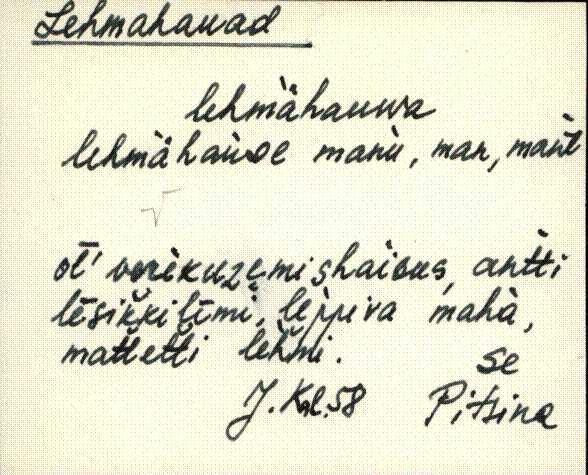 Lehmahauad
lehmähauwa
lehmähauwoe manu, man, mant
ol' verikuzemishaigus, antti
lēsikkilīmi, leppiva maha,
mattetti lehmi.
se
J. Kal. 58 Pitsina